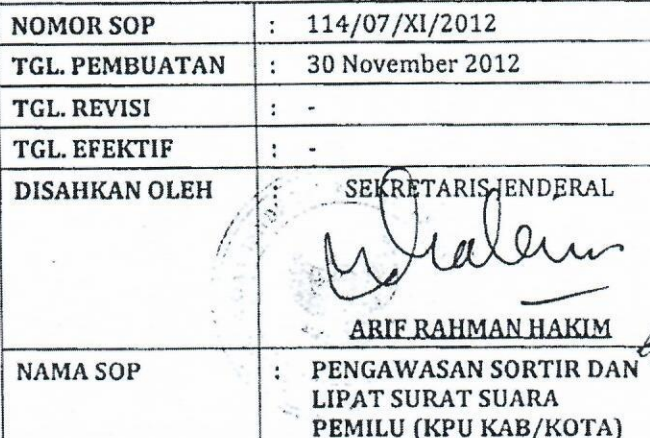 NOMOR SOP : 114/07/XI/2012
TGL. PEMBUATAN : 30 November 2012
TGL. REVISI : -
TGL. EFEKTIF : -
DISAHKAN OLEH : SEKRETARIS JENDERAL
ARIF RAHMAN HAKIM
NAMA SOP : PENGAWASAN SORTIR DAN
LIPAT SURAT SUARA
PEMILU (KPU KAB/KOTA)